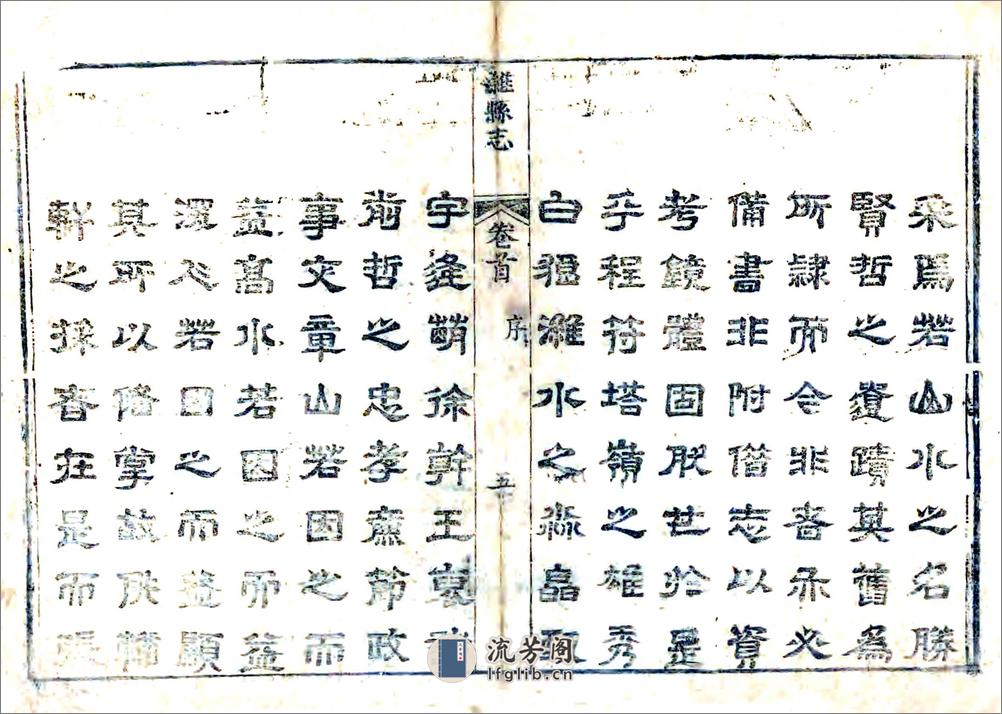 采爲若山水之名勝
賢哲之遺蹟其舊為
所隷而今非者亦必
備書非附借志以資
考鏡體固肰也於是
乎程符塔嶺之雄秀
白狼濰水之淼皛
濰縣志
卷首
序
五
宇逄萌徐幹王裒
前哲之忠孝廉節政
事文章山若因之而
益高水若因之而益
深人若因之而益顯
其所以脩掌故供輶
軒之採者在是而
流芳阁
lfglib.cn